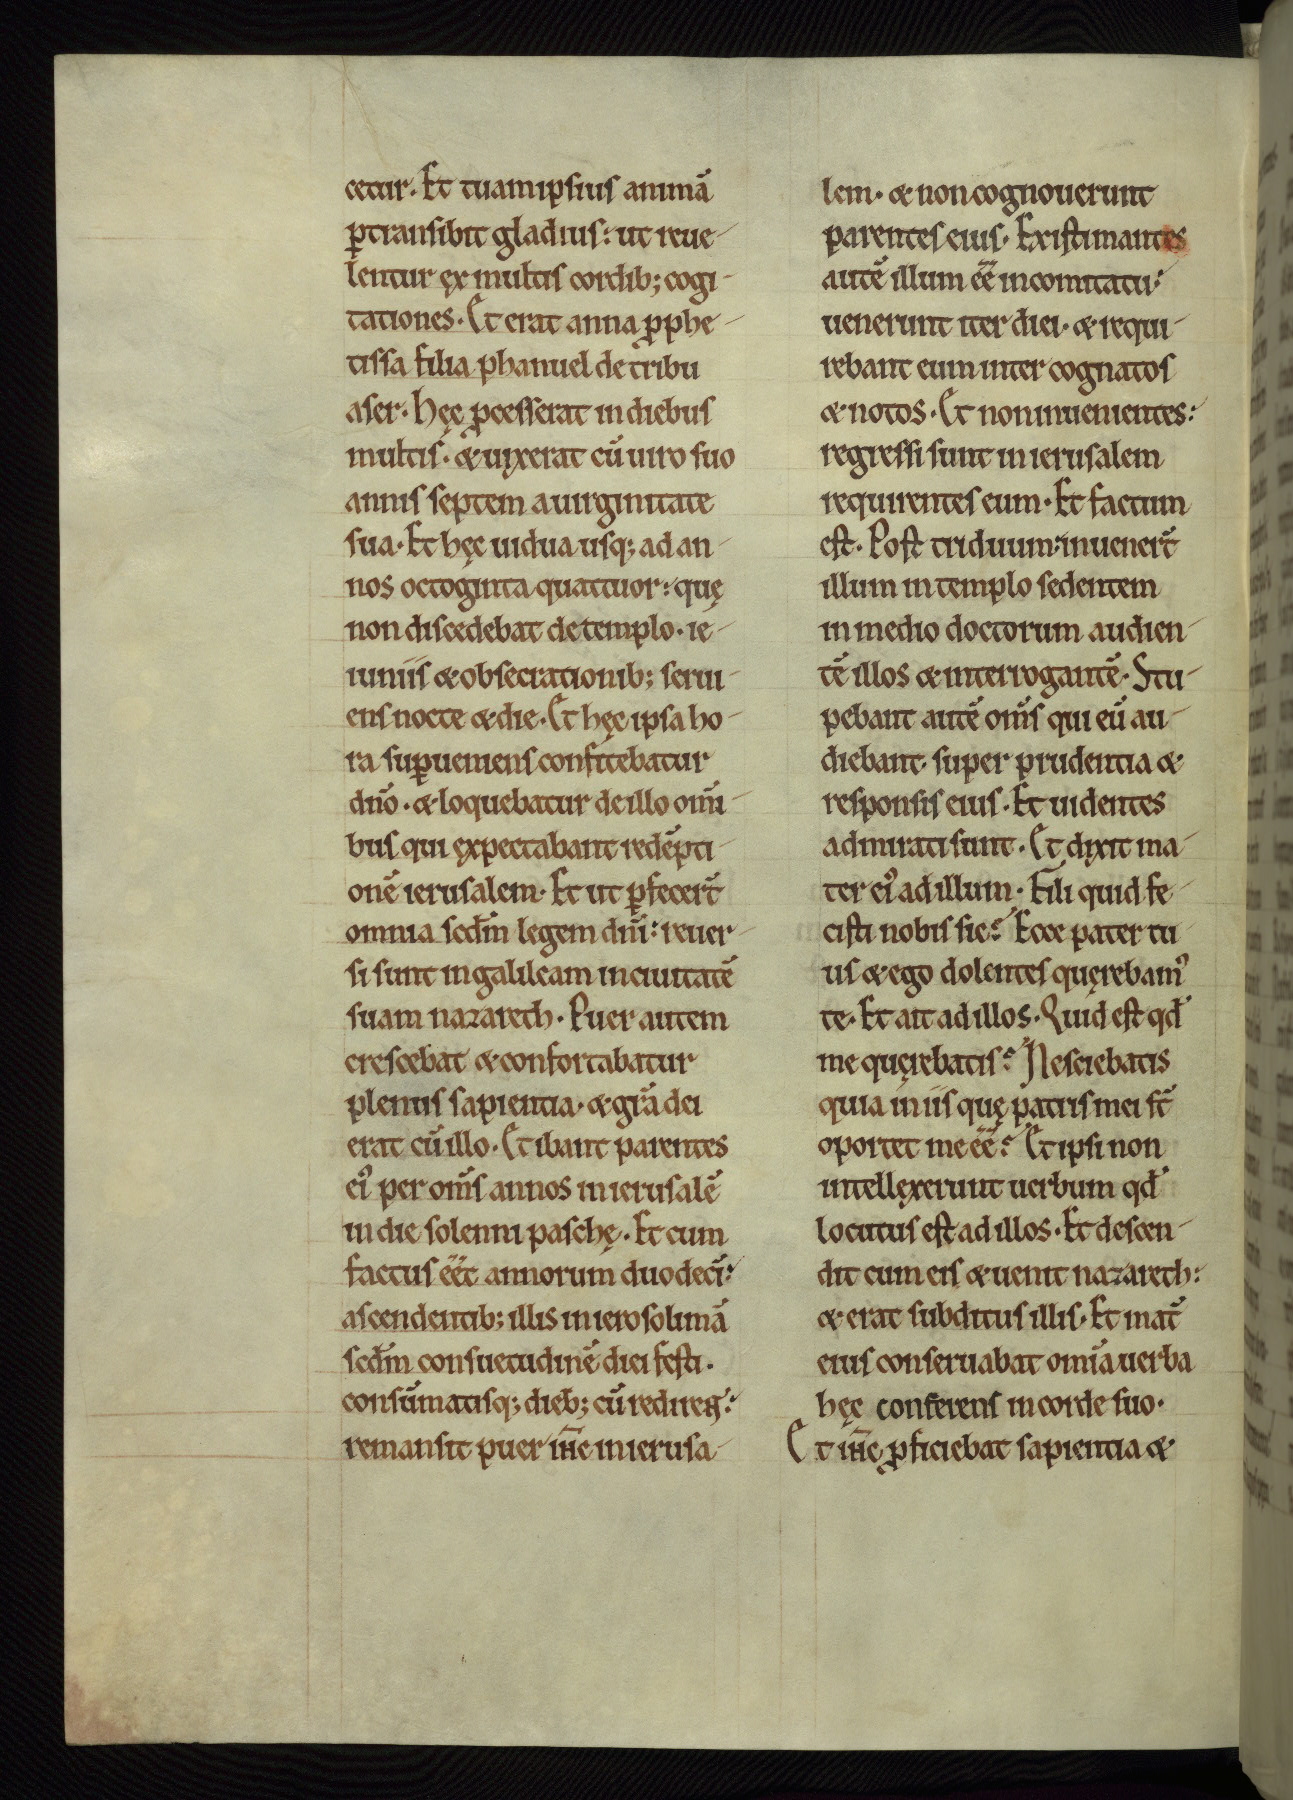 cetur. Et tuam ipsius animā
ꝑtransibit gladius: ut reue-
lentur ex multis cordib; cogi-
tationes. Et erat anna ꝓphe-
tissa filia phanuel de tribu
aser. hęc ꝓcesserat in diebus
multis. & uixerat cū uiro suo
annis septem a uirginitate
sua. Et hęc uidua usq; ad an-
nos octoginta quattuor: quę
non discedebat de templo. ie-
iuniis & obsecrationib; serui-
ens nocte & die. Et hęc ipsa ho-
ra suꝑueniens confitebatur
dn̄o. & loquebatur de illo om̄i-
bus qui expectabant redēpti-
onē ierusalem. Et ut ꝑfecer̄t
omnia scdm̄ legem dn̄i: reuer-
si sunt in galileam in ciuitatē
suam nazareth. Puer autem
crescebat & confortabatur
plenus sapientia. & gr̄a dei
erat cū illo. Et ibant parentes
ei᾿ per om̄s annos in ierusalē
in die solenni paschę. Et cum
factus eēt annorum duodecī:
ascendentib; illis in ierosolimā
scdm̄ consuetudinē diei festi.
consūmatisq; dieb; cū rediren̄t:
remansit puer ih̄c in ierusa-
lem. & non cognouerunt
parentes eius. Existimantes
autē illum eē in comitatu:
uenerunt iter diei. & requi-
rebant eum inter cognatos
& notos. Et non inuenientes:
regressi sunt in ierusalem
requirentes eum. Et factum
est. Post triduum: inuener̄t
illum in templo sedentem
in medio doctorum audien-
tē illos & interrogantē. Stu-
pebant autē om̄s qui eū au-
diebant. super prudentia &
responsis eius. Et uidentes
admirati sunt. Et dixit ma-
ter ei᾿ ad illum. Fili quid fe-
cisti nobis sic? Ecce pater tu
us & ego dolentes quęrebam᾿
te. Et ait ad illos. Quid est qđ
me quęrebatis? Nesciebatis
quia in iis quę patris mei st̄
oportet me eē? Et ipsi non
intellexerunt uerbum qđ
locutus est ad illos. Et descen-
dit cum eis & uenit nazareth:
& erat subditus illis. Et mat̄
eius conseruabat omīa uerba
hęc conferens in corde suo.
Et ih̄c ꝓficiebat sapientia &